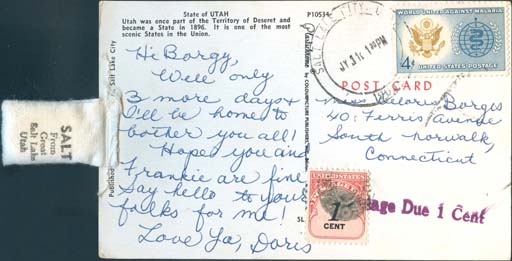 State of UTAH
Utah was once part of the Territory of Deseret and
became a State in 1896. It is one of the most
scenic States in the Union.
P10534
Hi Borgy,
Well only
3 more days &
I'll be home to
bother you all!
Hope you and
Frankie are fine
Say hello to your
folks for me!
Love Ya, Doris
SALT
From
Great
Salt Lake
Utah
Published
Salt Lake City
SALT LAKE CITY
1 PM
WORLD UNITED AGAINST MALARIA
4¢
UNITED STATES POSTAGE
POST CARD
Miss Delores Borges
40 Ferris Avenue
South Norwalk,
Connecticut
UNITED STATES
1
CENT
age Due 1 Cent
5L